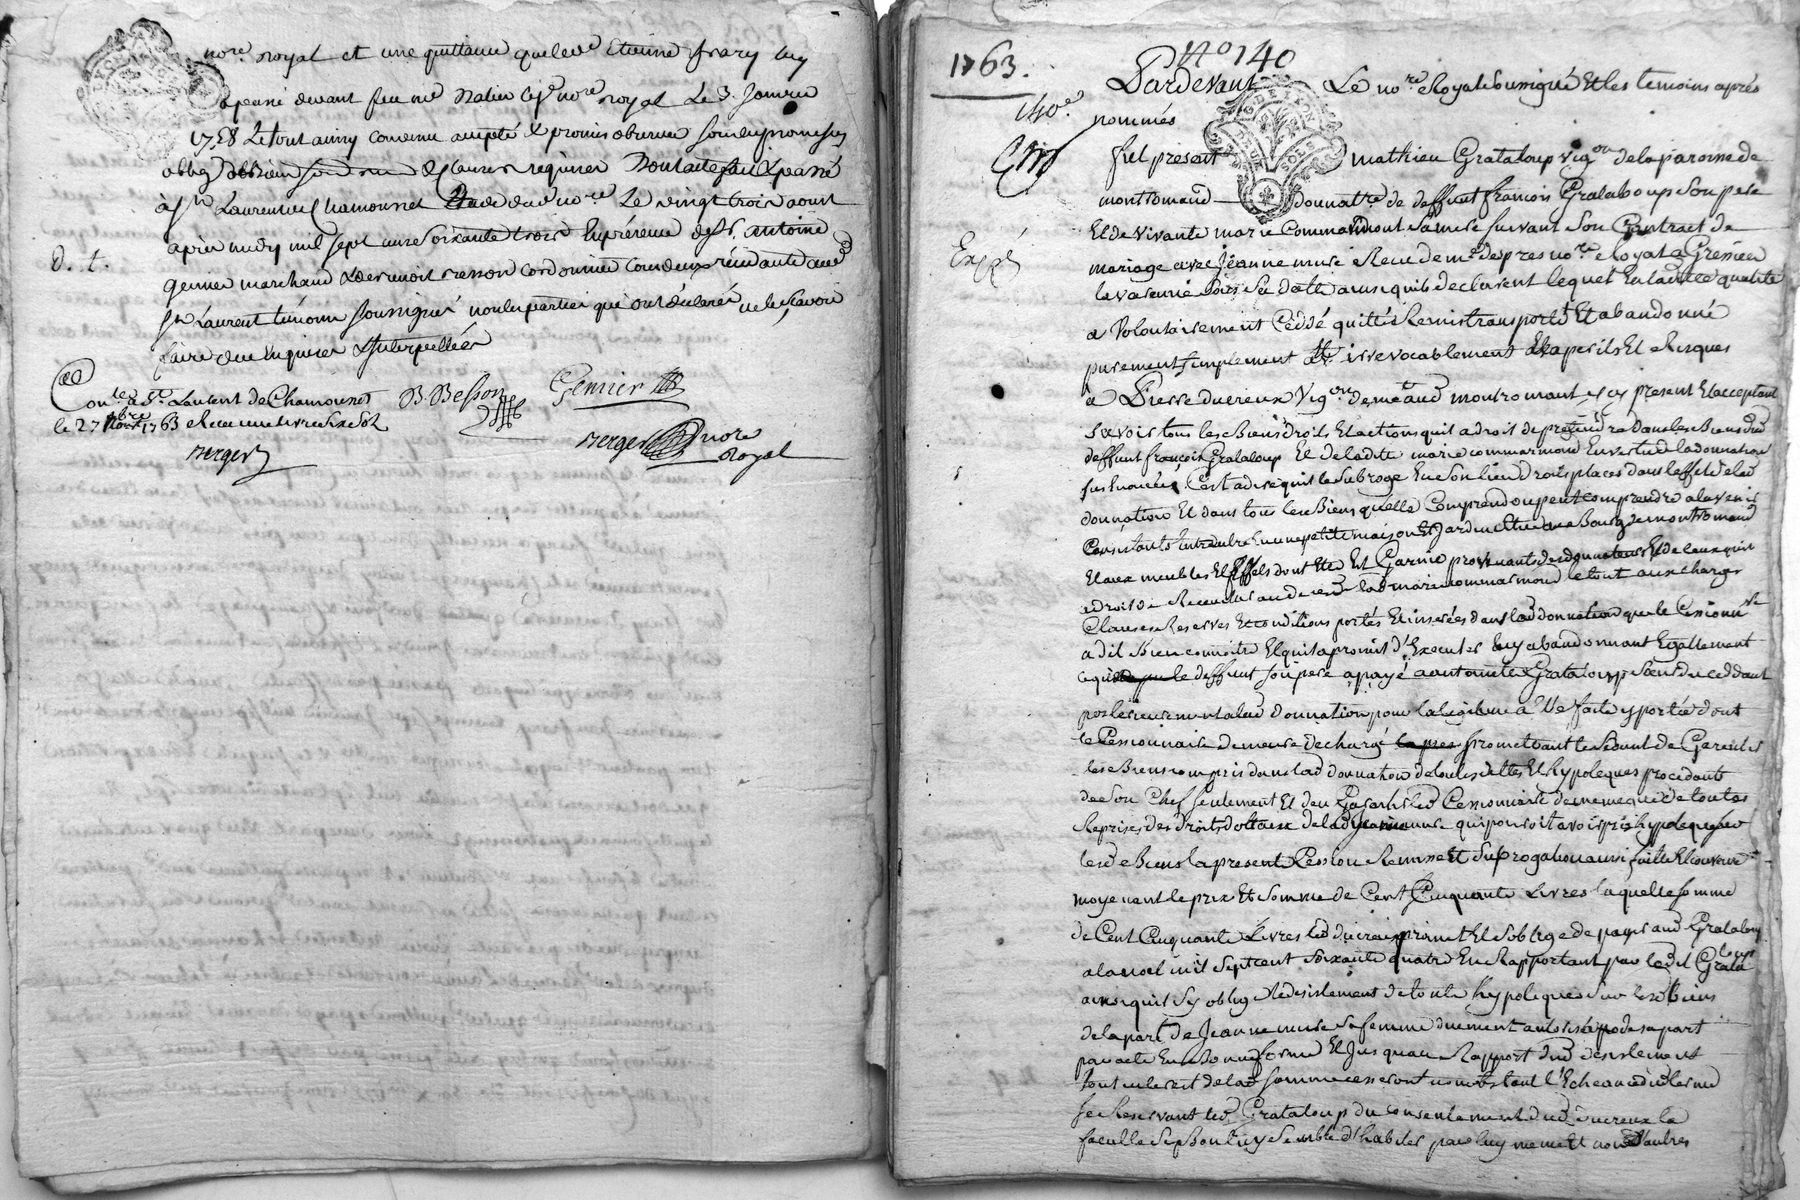 nore royal et une quittance que led Etienne
passé devant feu me nore royal Le 3. Janvier
1758 Le tout ainsy convenu accepté & promis observer
oblig clauses requises fait & passé
à St Laurent de Chamousset Etude dud nore Le vingt trois aoust
après midy mil sept cens soixante trois En présence de Sr. antoine
d. t.
marchand & Benoit Besson cordonnier
St Laurent témoins soussignés non les parties qui ont déclaré ne le sçavoir
faire de ce Enquises & Interpellées
Conlé a St. Laurent de Chamousset
le 27 1763 Reçu une livre six s
B. Besson
Genier
berger
berger nore
Royal
1763.
No 140
140e
Expé
Pardevant Le nore Royal soussigné Et les temoins après
nommés
fut présent mathieu Grataloup vigon de la paroisse de
montromand donnatre de deffunt françois Grataloup son pere
Et de vivante marie Commarmont sa mere suivant son Contract de
mariage avec Jeanne mure Receu de me despres nore Royal a Grésieu
la varenne sous sa datte ainsi quils declarent lequel En ladite qualité
a volontairement Ceddé quitté Remis transporté Et abandonné
purement simplement Et irrevocablement Et a perils Et Risques
a Pierre ducreux Vigon demt aud montromant icy present Et acceptant
sçavoir tous les Biens droits Et actions quil a droit de prétendre dans les Biens dud
deffunt françois Grataloup Et de ladite marie commarmond En vertu de la donnation
sus Enoncée, C'est a dire quil le subroge En son lieu droit places dans l'effet de lad
donnation Et dans tous les Biens quelle Comprend ou peut comprendre a lavenir
Consistants Entre autre En une petite maison Et jardin situé au Bourg de montromand
Et aux meubles Et Effets dont Elle Est Garnie provenants des donnateurs Et de ceux quil
a droit de Recueillir au deces de lad marie commarmond le tout aux charges
Clauses Reserves Et conditions portés Et inserées dans lad donnation que le Cessionnre
a dit Bien connoitre Et quil a promis d'Executer En y abandonnant Egallement
ce qui le deffunt son pere a payé a antoinette Grataloup sœur du ceddant
posterieurement a lad donnation pour la legitime a Elle faite y portée dont
le Cessionnaire demeure decharge promettant le cedant de Garentir
les Biens compris dans lad donnation de toutes dettes Et hypoteques procedants
de son Chef seulement Et de Garantir led Cessionnaire de meme que de toutes
Reprises des droits dotaux de lad Jeanne mure qui pouroit avoir pris hypoteque sur
lesd Biens la present Cession Remise Et subrogation ainsi faite Et convenue
moyenant le prix Et somme de Cent Cinquante Livres laquelle somme
de Cent Cinquante Livres led ducreux promet Et s'oblige de payer aud Grataloup
a la noel mil sept cent soixante quatre En Rapportant par led Grataloup
ainsi quil s'y oblig le desistement de toute hypoteques sur lesd biens
de la part de Jeanne mure sa femme duement autorisée de sa part
par acte En Bonne forme Et Jusquau Rapport dud desistement
tout interest de lad somme cesseront nonobstant l'Echeance dud terme
se Reservant led Grataloup du consentement dud ducreux la
faculté si Bon luy semble d'habiter pour luy meme Et non d'autres